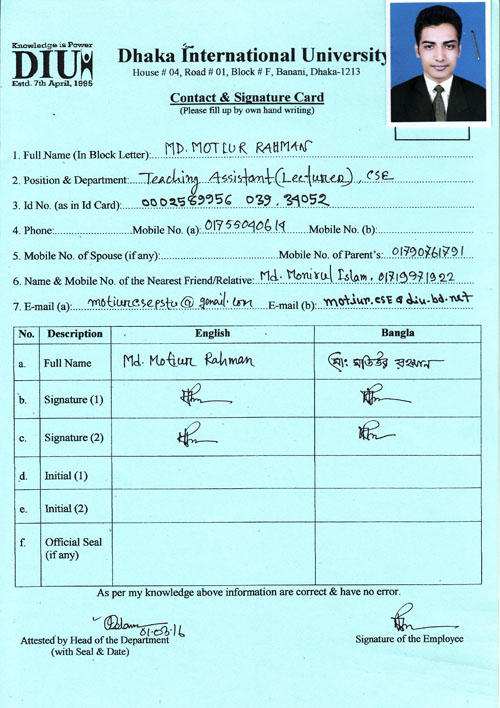 Knowledge is Power
DIU
Estd. 7th April, 1995
Dhaka International University
House # 04, Road # 01, Block # F, Banani, Dhaka-1213
Contact & Signature Card
(Please fill up by own hand writing)
1. Full Name (In Block Letter): MD. MOTIUR RAHMAN
2. Position & Department: Teaching Assistant (Lecturer), CSE
3. Id No. (as in Id Card): 0002589956 039, 34052
4. Phone: Mobile No. (a): 01755040614 Mobile No. (b):
5. Mobile No. of Spouse (if any): Mobile No. of Parent's: 01790761791
6. Name & Mobile No. of the Nearest Friend/Relative: Md. Monirul Islam, 01719971922
7. E-mail (a): motiurcsepstu@gmail.com E-mail (b): motiur.cse@diu-bd.net
No. Description English Bangla
a. Full Name Md. Motiur Rahman মোঃ মতিউর রহমান
b. Signature (1)
c. Signature (2)
d. Initial (1)
e. Initial (2)
f. Official Seal
(if any)
As per my knowledge above information are correct & have no error.
01-03-16
Attested by Head of the Department
(with Seal & Date)
Signature of the Employee